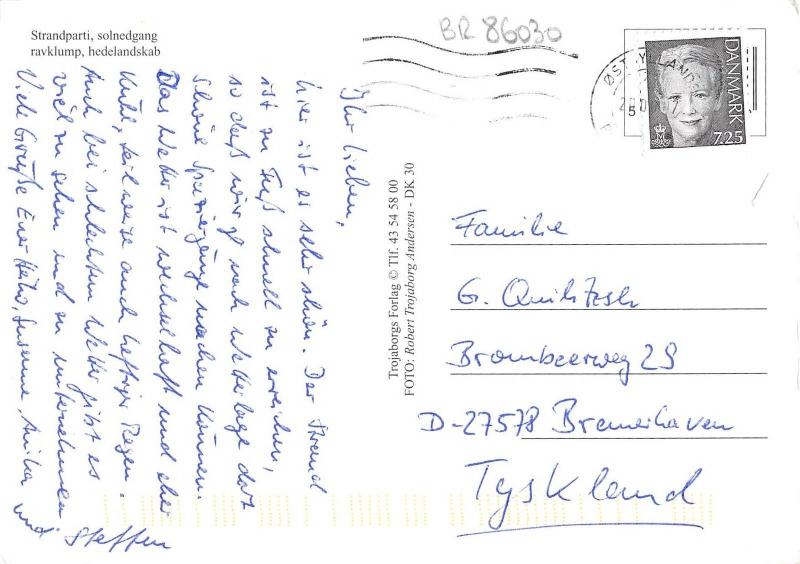 Strandparti, solnedgang
ravklump, hedelandskab
BR 86030
DANMARK
7.25
Ihr Lieben,
hier ist es sehr schön. Der Strand
ist zu Fuß schnell zu erreichen,
so daß wir je nach Wetterlage dort
schöne Spaziergänge machen können.
Das Wetter ist wechselhaft und eher
kühl, teilweise auch heftiger Regen.
Auch bei schlechtem Wetter gibt es
viel zu sehen und zu unternehmen.
Viele Grüße Euer Heiko, Susanne, Anika und
Steffen
Trojaborgs Forlag © Tlf. 43 54 58 00
FOTO: Robert Trojaborg Andersen - DK 30
Familie
G. Quilitzsch
Brombeerweg 29
D-27578 Bremerhaven
Tyskland